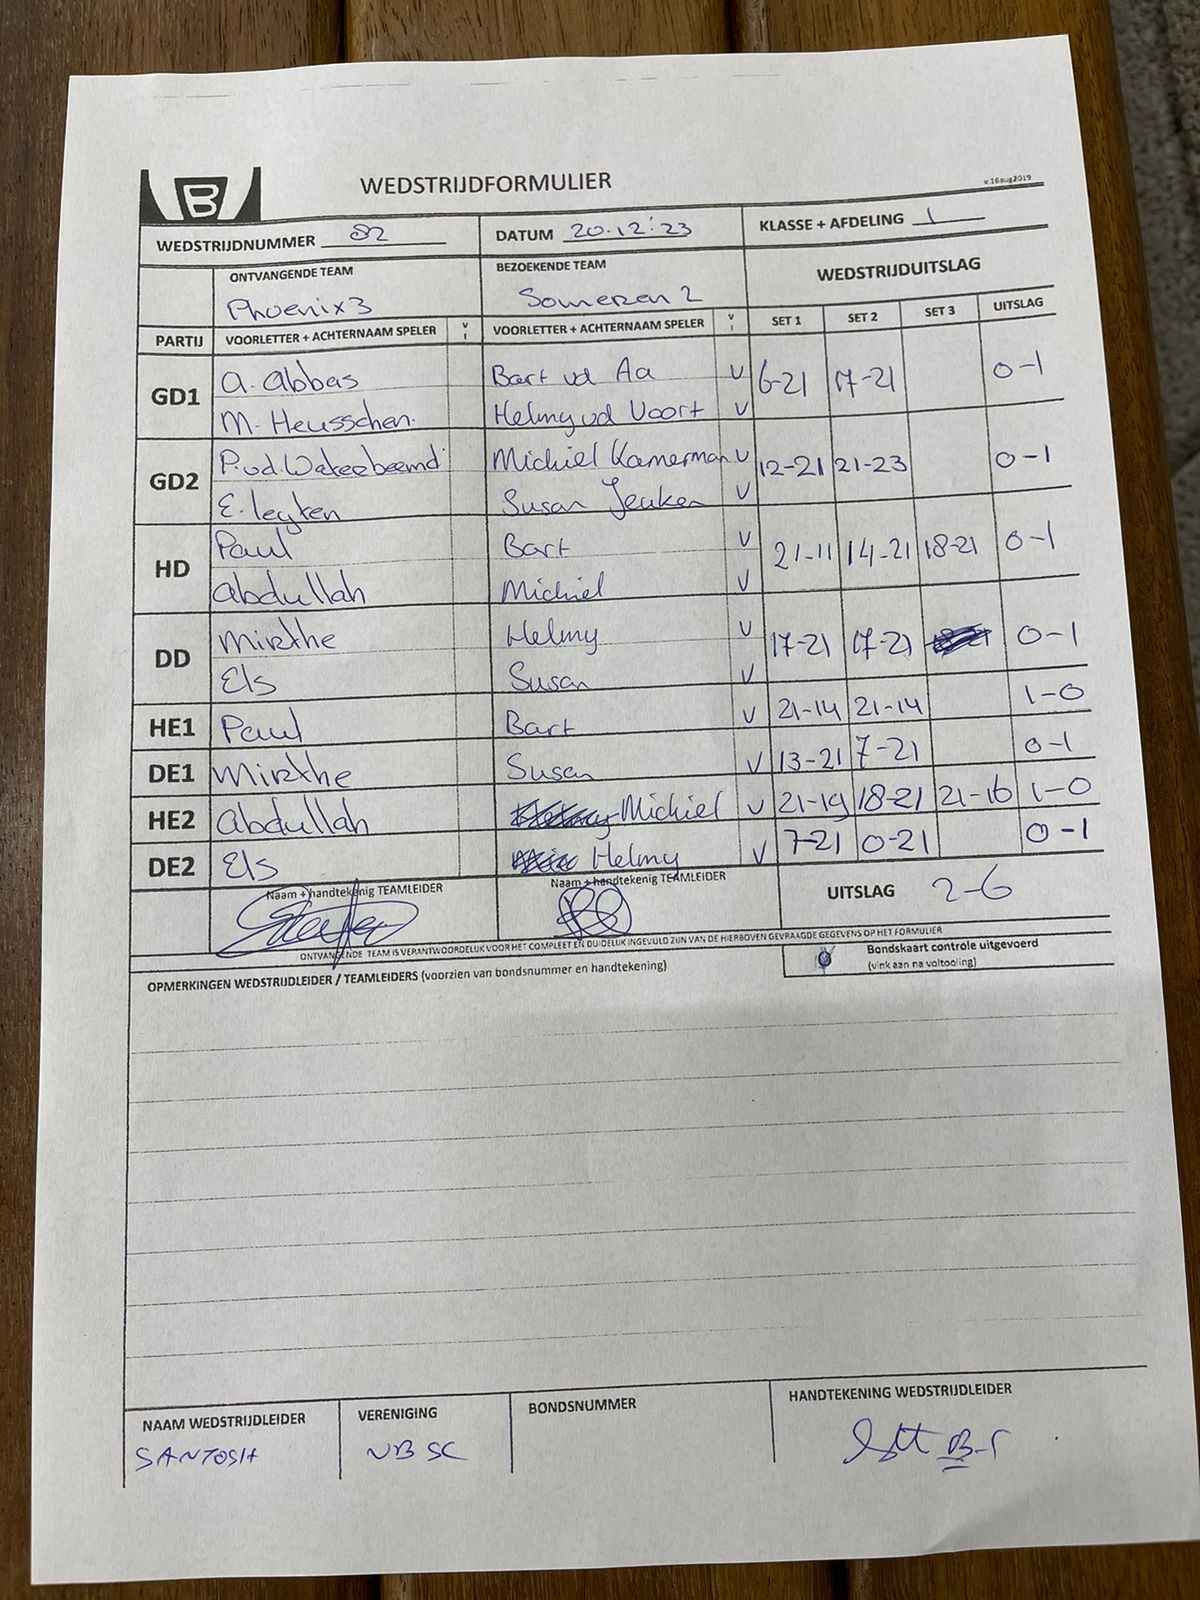 B
WEDSTRIJDFORMULIER
v.16aug2019
WEDSTRIJDNUMMER 82 DATUM 20.12.'23 KLASSE + AFDELING 1
ONTVANGENDE TEAM BEZOEKENDE TEAM WEDSTRIJDUITSLAG
Phoenix 3 Someren 2
PARTIJ VOORLETTER + ACHTERNAAM SPELER V VOORLETTER + ACHTERNAAM SPELER V SET 1 SET 2 SET 3 UITSLAG
GD1 A. Abbas Bart vd Aa V 6-21 17-21 0-1
M. Heusschen. Helmy vd Voort V
GD2 P. vd. Wakerbeemd Michiel Kamerman V 12-21 21-23 0-1
E. leyten Susan Jeuken V
HD Paul Bart V 21-11 14-21 18-21 0-1
Abdullah Michiel V
DD Mirthe Helmy V 17-21 17-21 0-1
Els Susan V
HE1 Paul Bart V 21-14 21-14 1-0
DE1 Mirthe Susan V 13-21 7-21 0-1
HE2 Abdullah Michiel V 21-19 18-21 21-16 1-0
DE2 Els Helmy V 7-21 0-21 0-1
Naam + handtekenig TEAMLEIDER Naam + handtekenig TEAMLEIDER UITSLAG 2-6
ONTVANGENDE TEAM IS VERANTWOORDELIJK VOOR HET COMPLEET EN DUIDELIJK INGEVULD ZIJN VAN DE HIERBOVEN GEVRAAGDE GEGEVENS OP HET FORMULIER
Bondskaart controle uitgevoerd
(vink aan na voltooling)
OPMERKINGEN WEDSTRIJDLEIDER / TEAMLEIDERS (voorzien van bondsnummer en handtekening)
NAAM WEDSTRIJDLEIDER VERENIGING BONDSNUMMER HANDTEKENING WEDSTRIJDLEIDER
SANTOSH UBSC